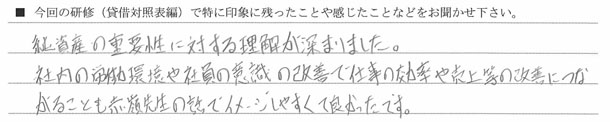 ■ 今回の研修（貸借対照表編）で特に印象に残ったことや感じたことなどをお聞かせ下さい。
純資産の重要性に対する理解が深まりました。
社内の労働環境や社員の意識の改善で仕事の効率や売上等の改善につな
がることも赤嶺先生の話でイメージしやすくて良かったです。